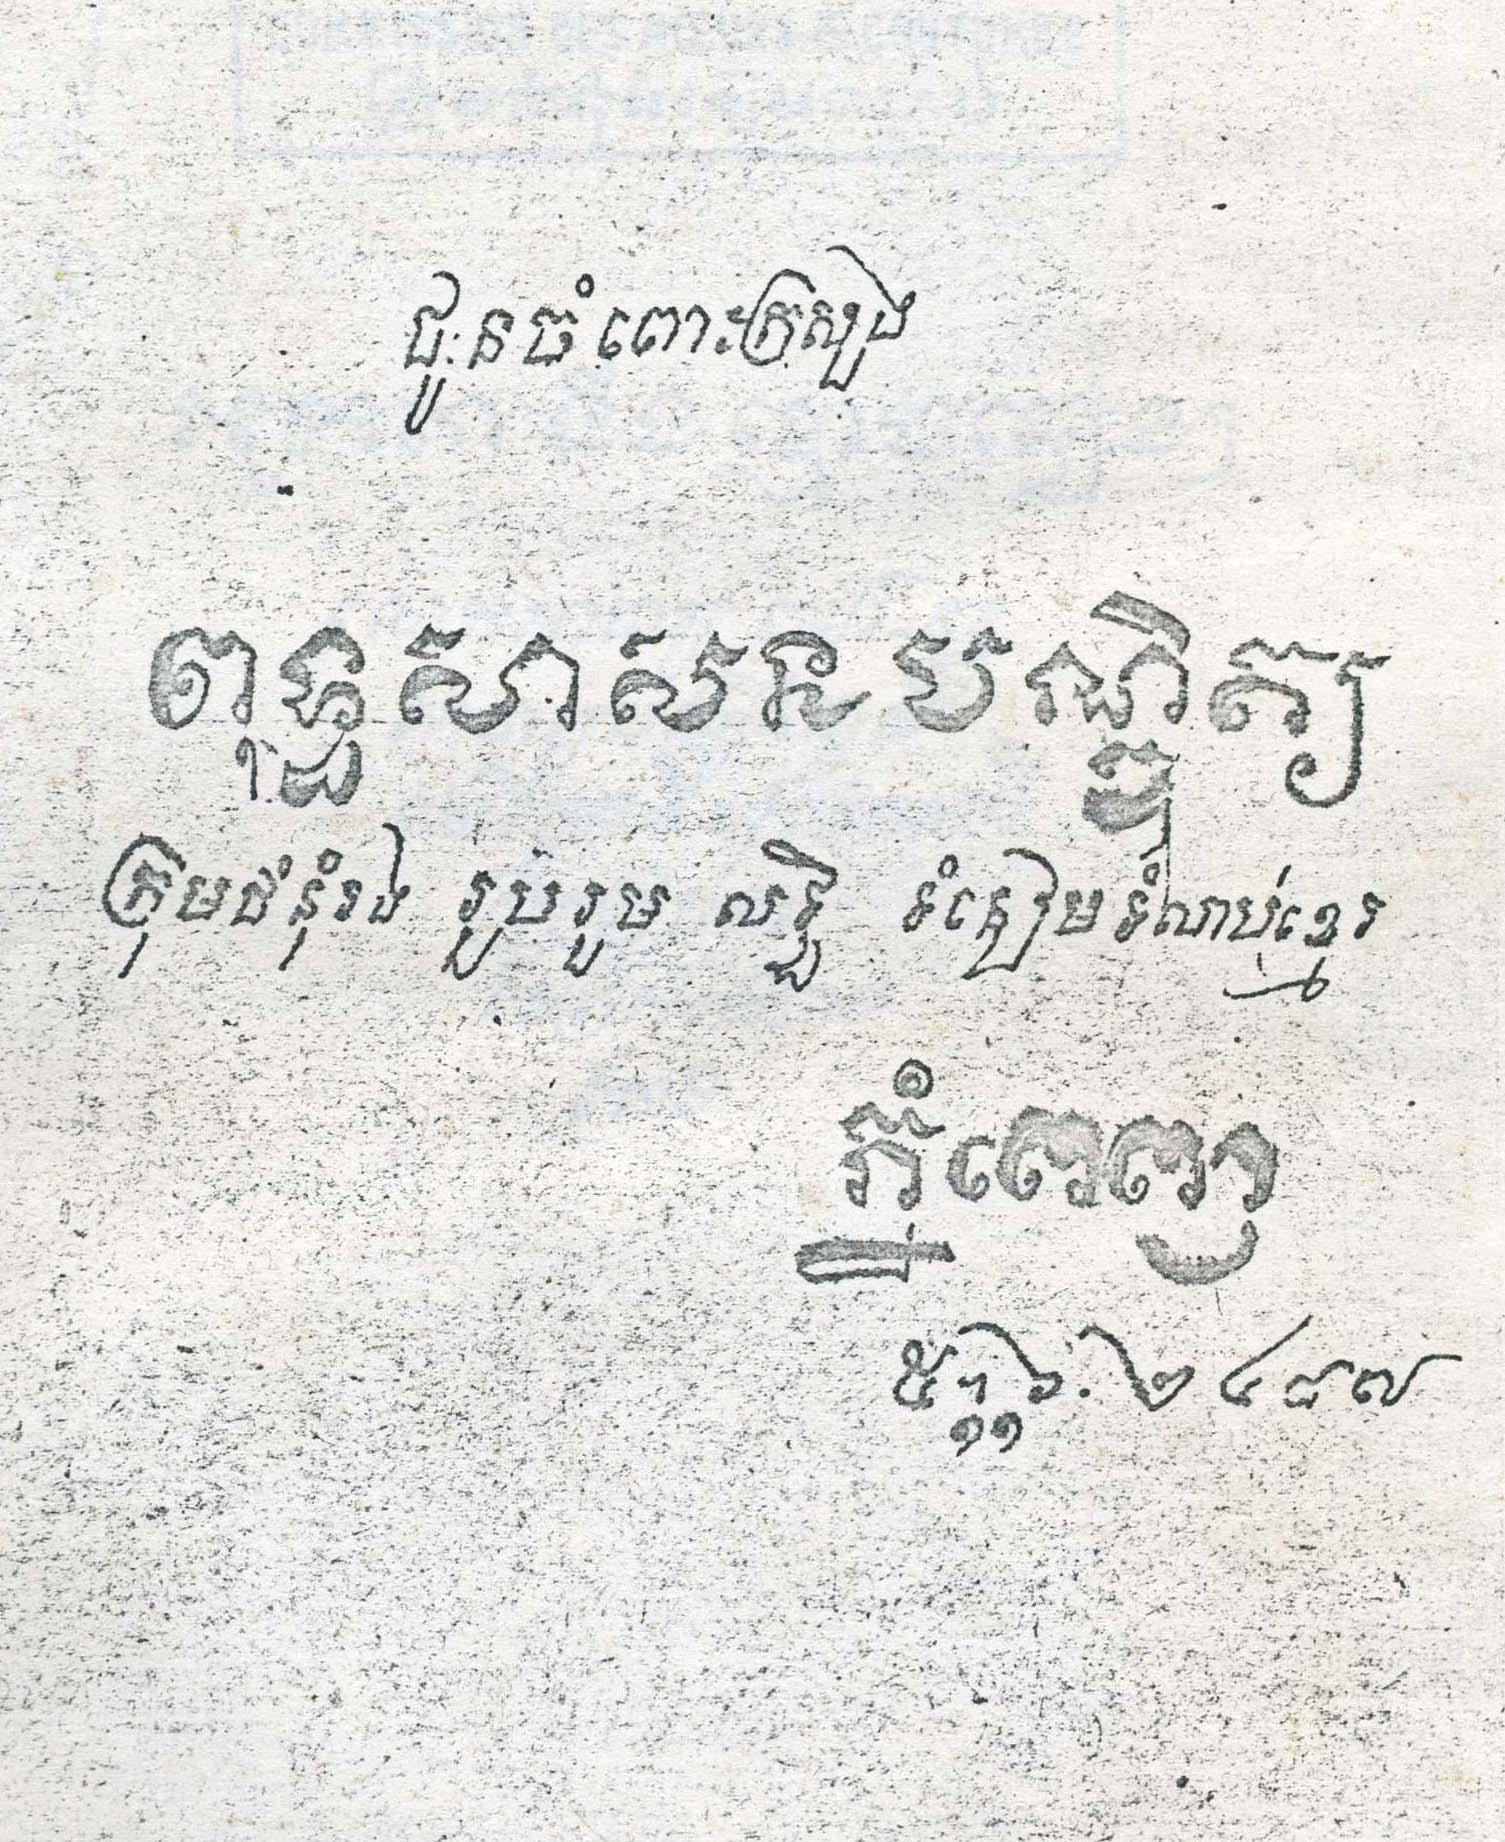 ជូនចំពោះក្រសួង
ពុទ្ធសាសនបណ្ឌិត្យ
ក្រុមជំនុំរង រួបរួម លទ្ធិ ទំនៀមទំលាប់ខ្មែរ
ភ្នំពេញ
២៤៨៧